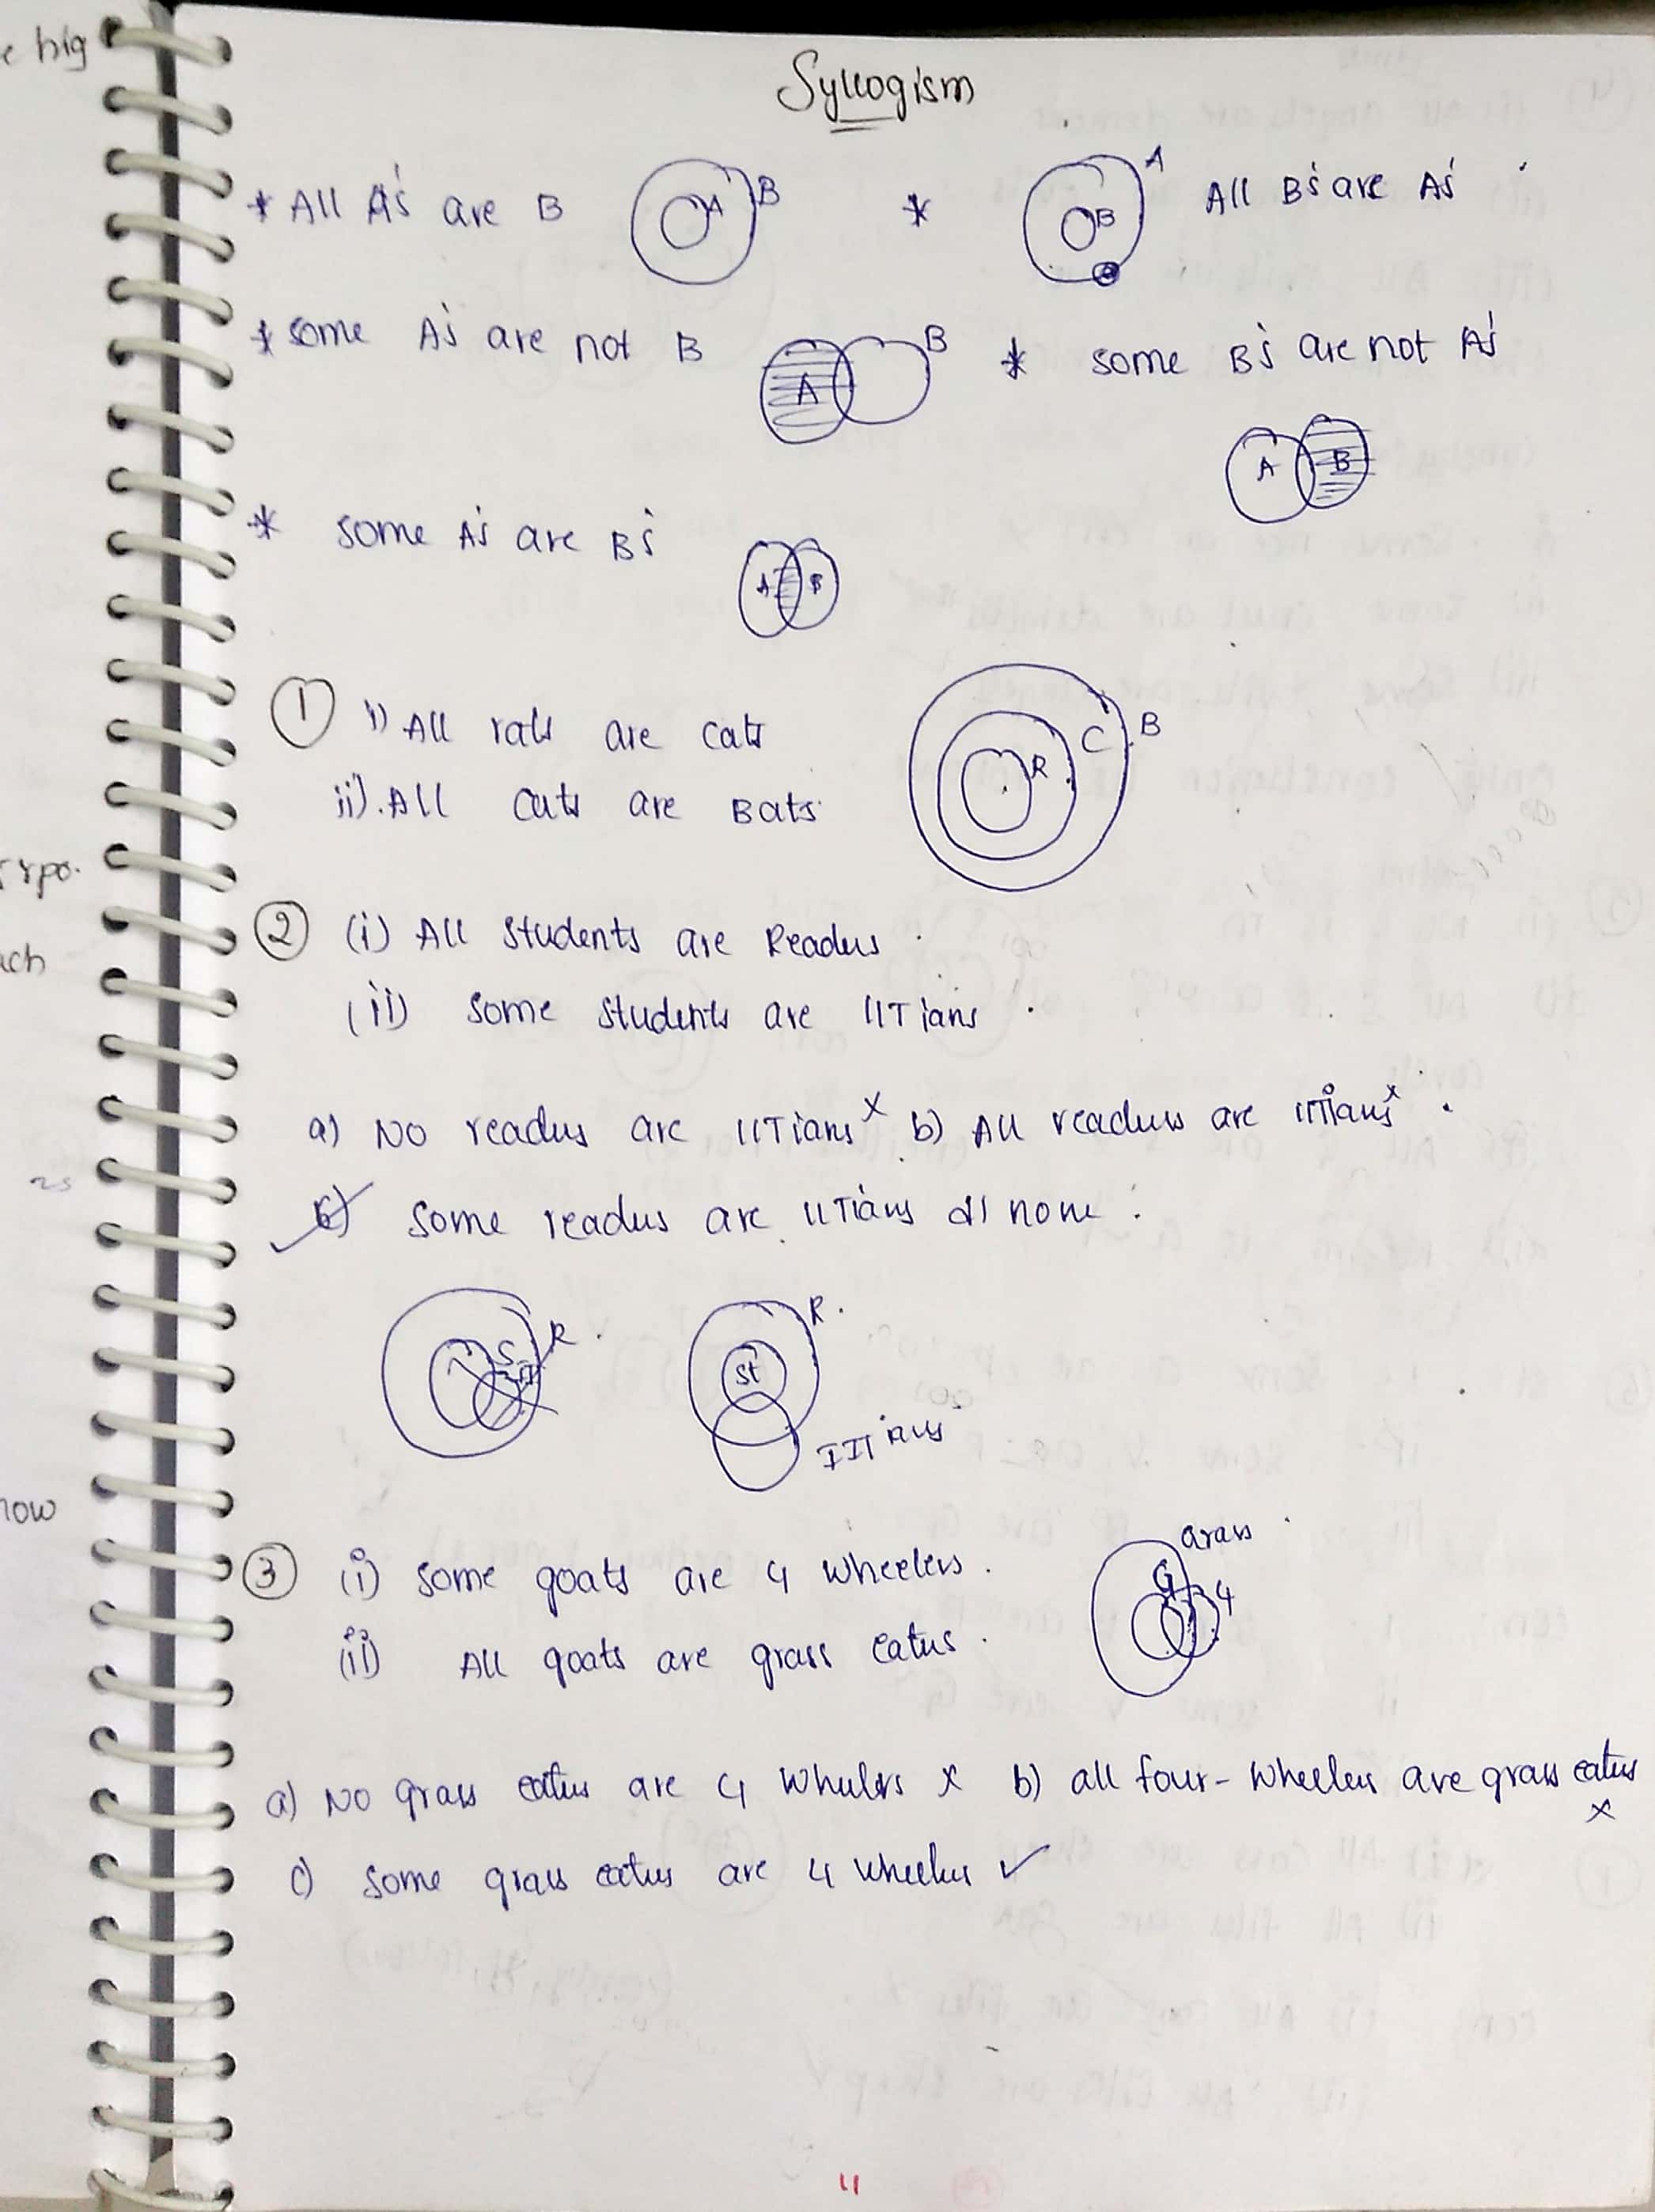 Syllogism
* All A's are B A B * A B All B's are A's
* some A's are not B A B * some B's are not A's
A B
* some A's are B's A B
① i) All rats are cats R C B
ii). All cats are Bats.
② (i) All students are Readers.
(ii) some students are IITians.
a) NO readers are IITians x b) All readers are IITians x.
c) some readers are IITians d) none.
S R. St R. IITians
③ (i) some goats are 4 wheelers. grass G 4
(ii) All goats are grass eaters.
a) NO grass eaters are 4 wheelers x b) all four-wheelers are grass eaters x
c) some grass eaters are 4 wheelers ✓
4
e big
rpo.
ach
25
now